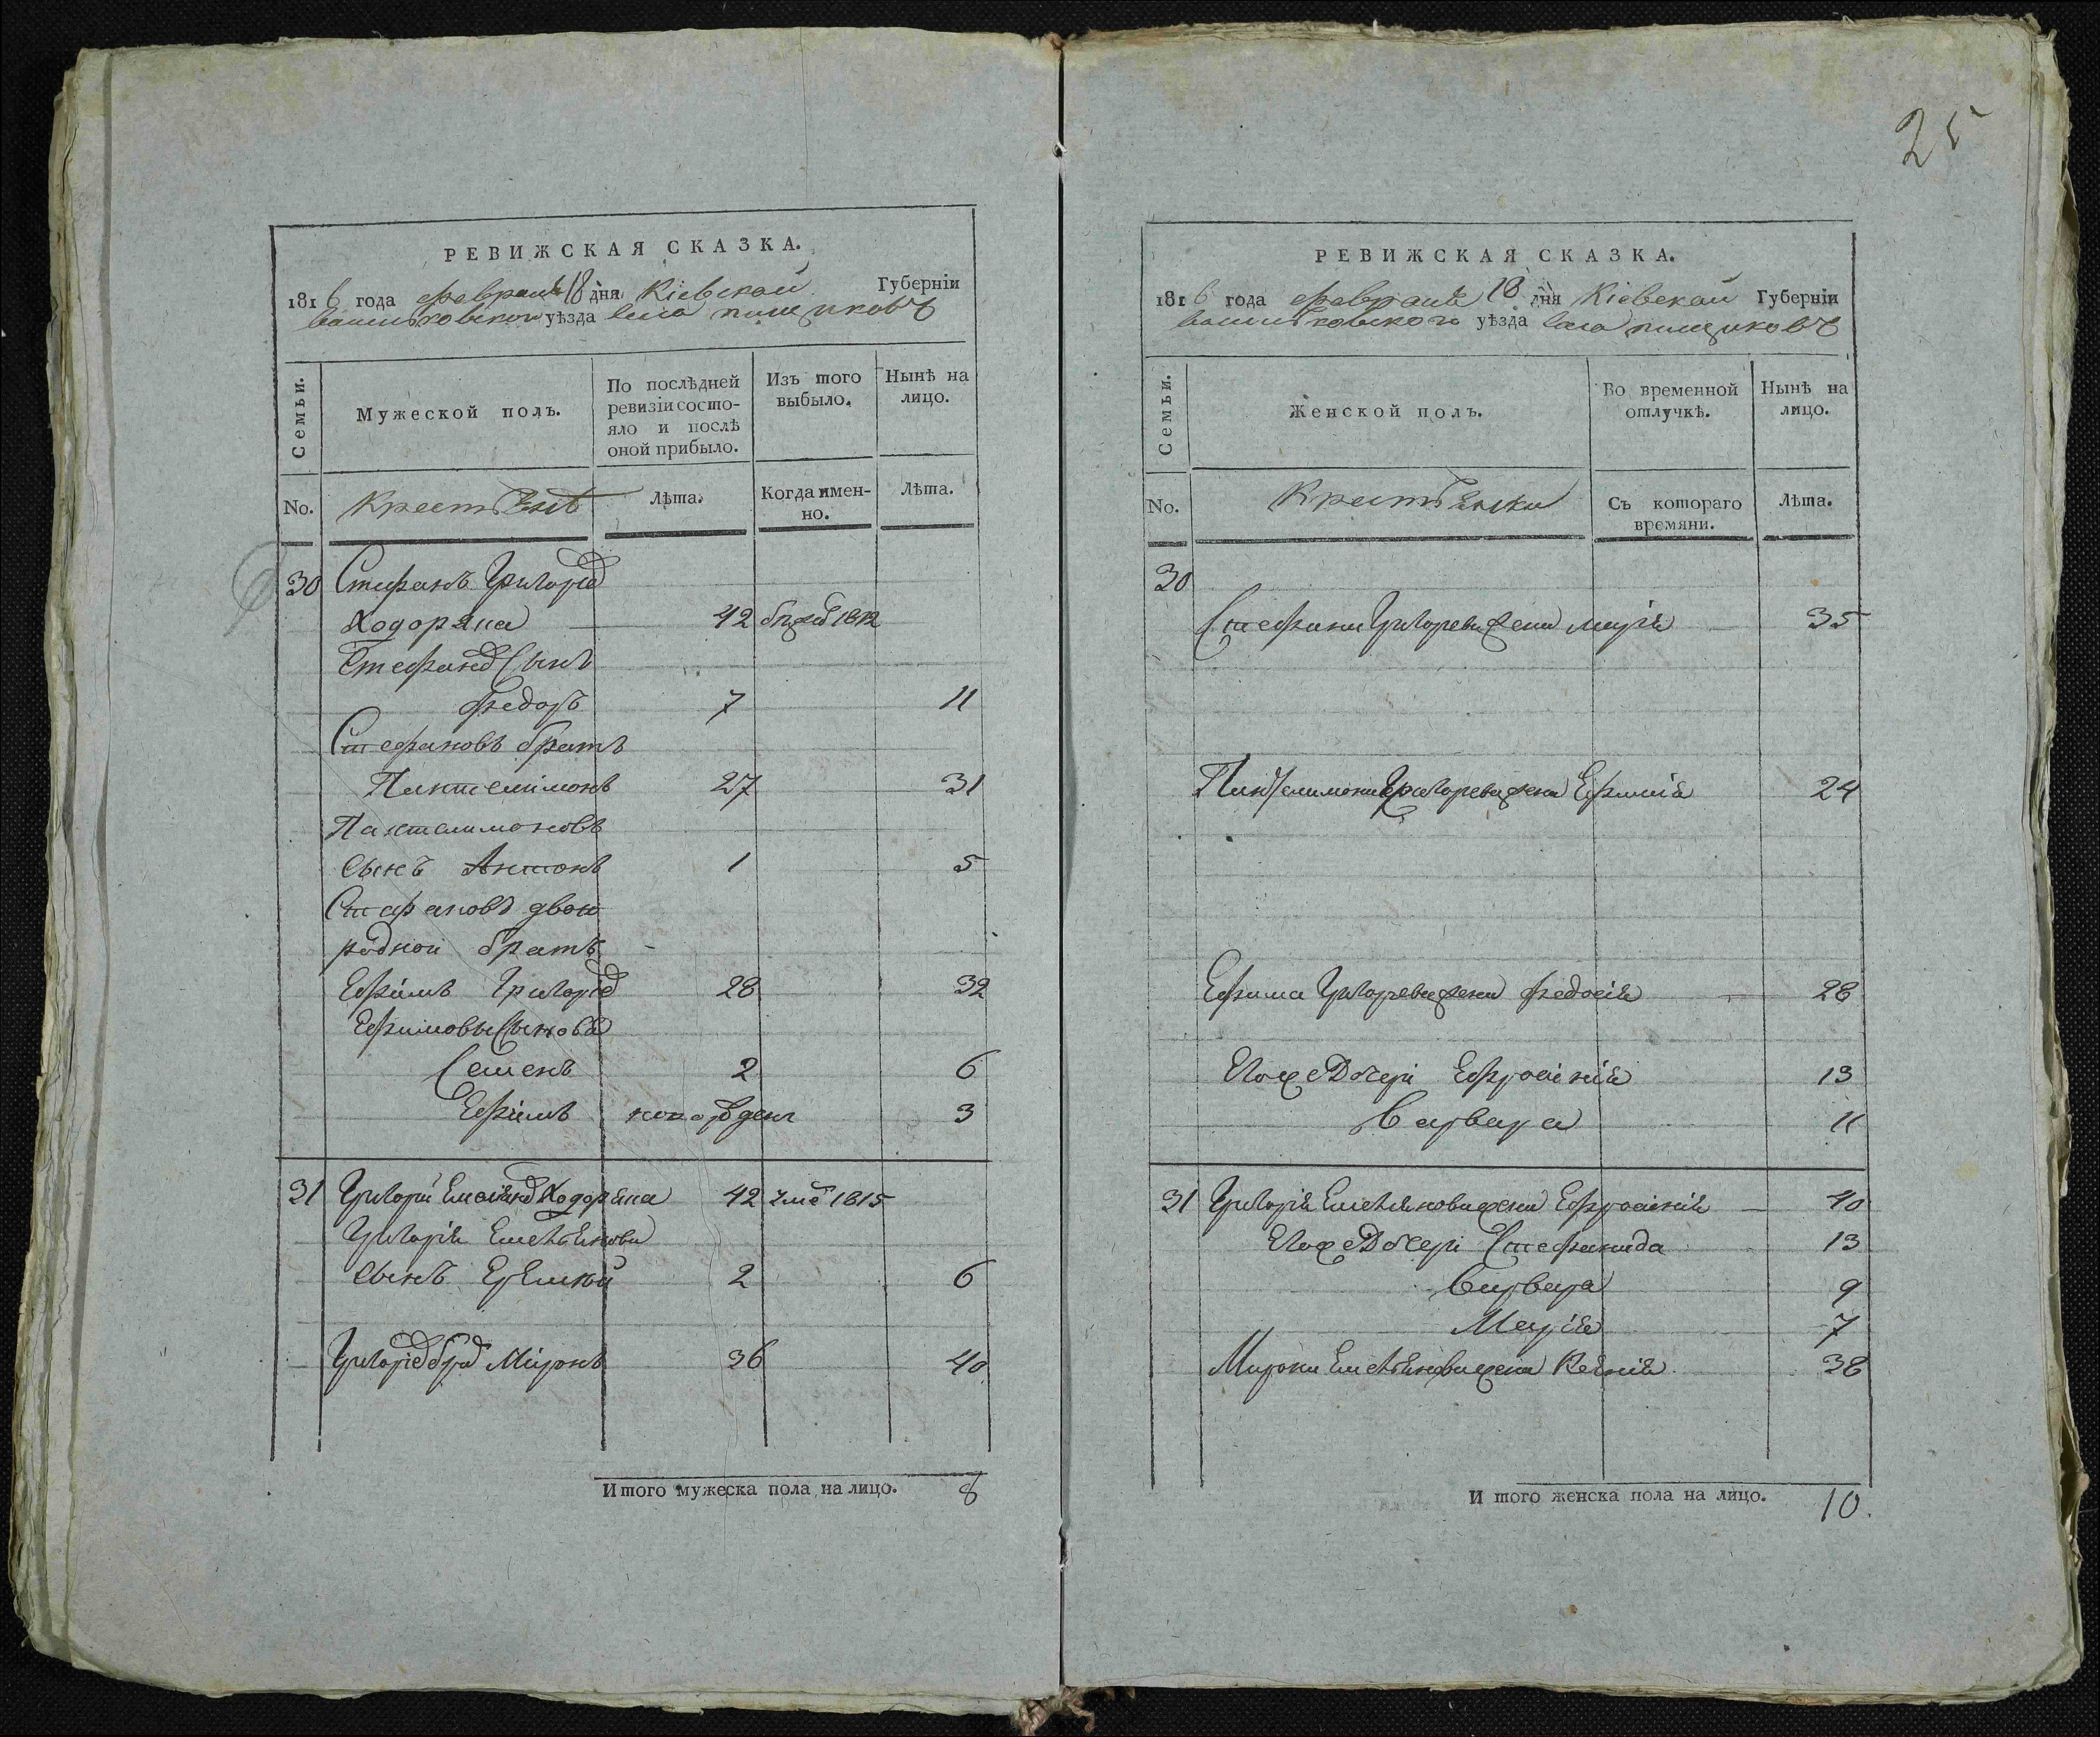 25
РЕВИЖСКАЯ СКАЗКА.
1816 года февраля 18 дня Кіевской Губерніи
васильковского уѣзда села пищиковъ
Семьи.
Мужеской полъ.
По послѣдней ревизіи состояло и послѣ оной прибыло.
Изъ того выбыло.
Нынѣ на лицо.
No. Крестьянѣ Лѣта. Когда именно. Лѣта.
30 Стефанъ Григоріев
Ходоряка 42 1812
Стефанов Сынъ
Федоръ 7 11
Стефановъ братъ
Пантелімонъ 27 31
Пантелимоновъ
сынъ Антонъ 1 5
Стефановъ двою
родной братъ
Ефімъ Григорıев 28 32
Ефимовы Сыновя
Семенъ 2 6
Ефімъ новорожден 3
31 Григорій Емелянов Ходоряка 42 умер 1815
Григорія Емельянова
сынъ Еремій 2 6
Григоріев брат Міронъ 36 40
Итого мужеска пола на лицо. 8
РЕВИЖСКАЯ СКАЗКА.
1816 года февраля 18 дня Кіевской Губерніи
васильковского уѣзда села пищиковъ
Семьи.
Женской полъ.
Во временной отлучкѣ.
Нынѣ на лицо.
No. Крестьянки Съ котораго времяни. Лѣта.
30
Стефана Григорева жена марія 35
Пантелимона Григорева жена Ефимія 24
Ефима Григорева жена Федосія 28
Егоже Дочери Ефросінія 13
Варвара 11
31 Григорія Емельянова жена Ефросінія 40
Егоже Дочери Стефанида 13
Варвара 9
Марія 7
Мирона Емельянова жена Ксенія 38
И того женска пола на лицо. 10.